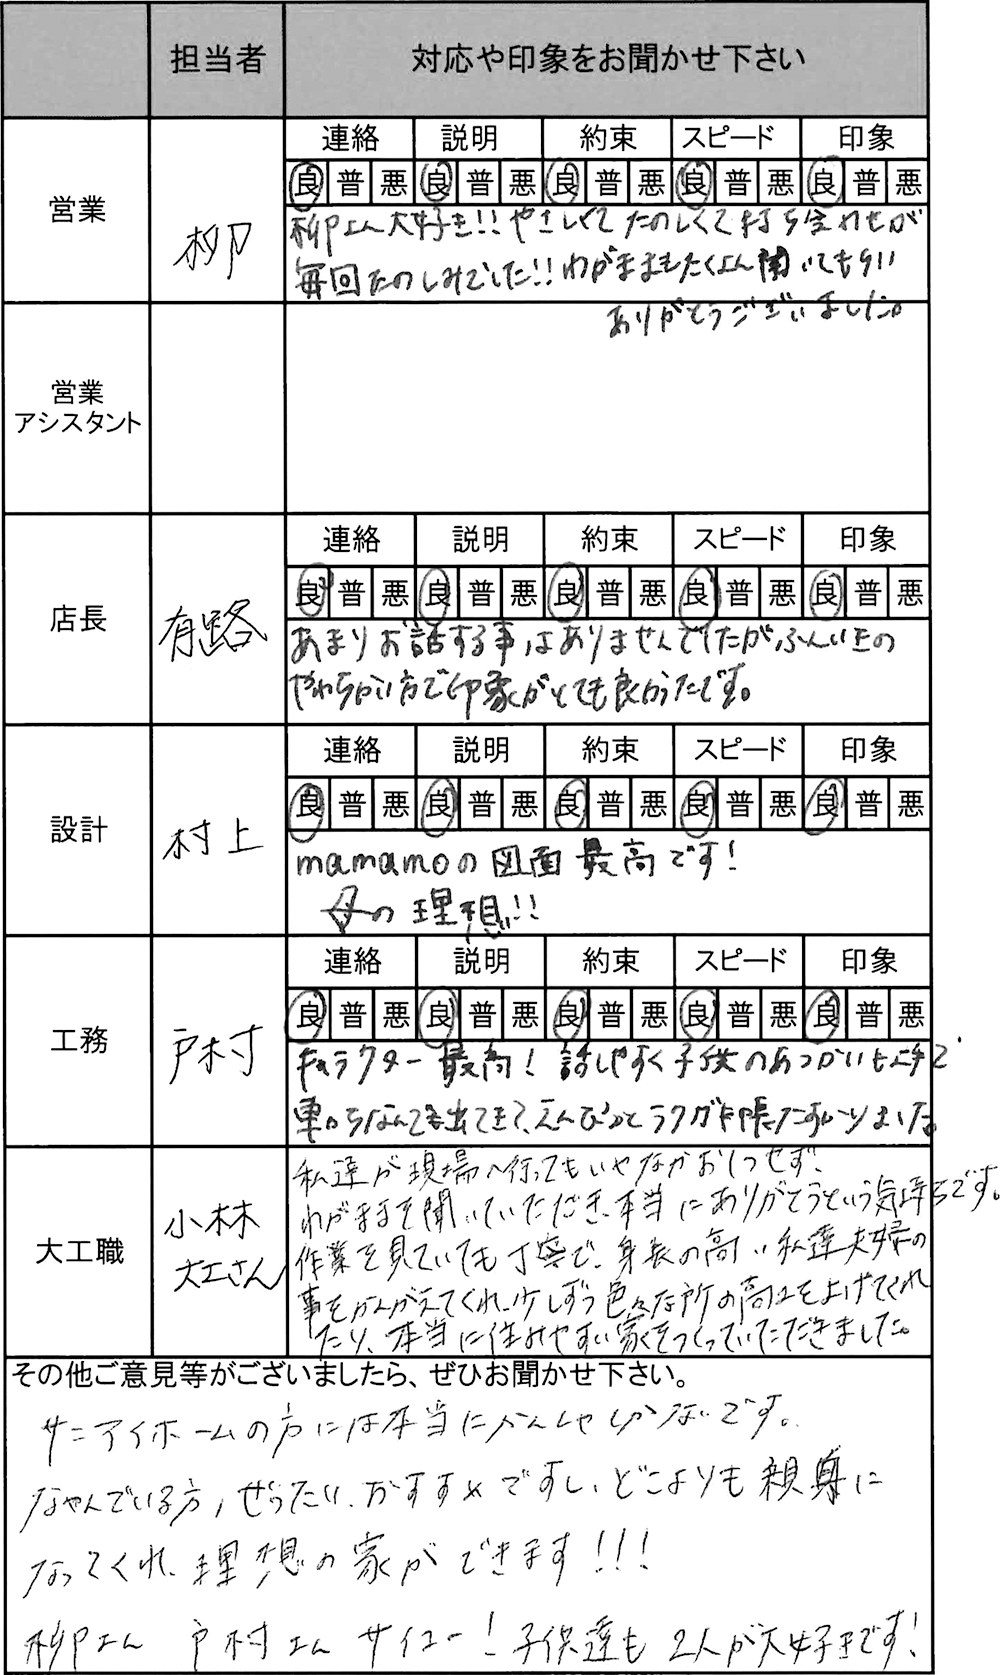 担当者 対応や印象をお聞かせ下さい
営業 柳
連絡 説明 約束 スピード 印象
良 普 悪 良 普 悪 良 普 悪 良 普 悪 良 普 悪
柳さん大好き!!やさしくてたのしくて打ち合わせが
毎回たのしみでした!!わがままもたくさん聞いてもらい
ありがとうございました。
営業
アシスタント
店長 有路
連絡 説明 約束 スピード 印象
良 普 悪 良 普 悪 良 普 悪 良 普 悪 良 普 悪
あまりお話する事はありませんでしたがふんいきの
やわらかい方で印象がとても良かったです。
設計 村上
連絡 説明 約束 スピード 印象
良 普 悪 良 普 悪 良 普 悪 良 普 悪 良 普 悪
mamamoの図面最高です!
母の理想!!
工務 戸村
連絡 説明 約束 スピード 印象
良 普 悪 良 普 悪 良 普 悪 良 普 悪 良 普 悪
キャラクター最高!話しやすく子供のあつかいも上手で
車からなんでも出てきて、えんぴつとラクガキ帳たすかりました
大工職 小林
大工さん
私達が現場へ行ってもいやなかおしつせず、
わがままを聞いていただき、本当にありがとうという気持ちです。
作業を見ていても丁寧で、身長の高い私達夫婦の
事をかんがえてくれ、少しずつ色々な所の高さを上げてくれ
たり、本当に住みやすい家をつくっていただきました。
その他ご意見等がございましたら、ぜひお聞かせ下さい。
サニアイホームの方には本当にかんしゃしかないです。
なやんでいる方、ぜったい、おすすめですし、どこよりも親身に
なってくれ、理想の家ができます!!!
柳さん 戸村さん サイコー!子供達も2人が大好きです!